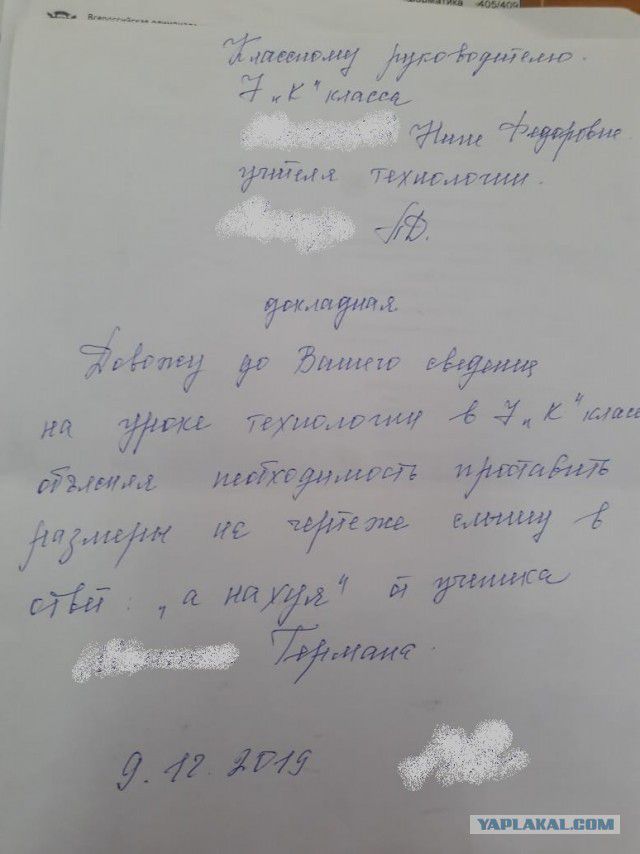 Всероссийская олимпиада
информатика 405/409
Классному руководителю.
7 „К" класса
Нине Федоровне.
учителя технологии.
Л.Д.
докладная.
Довожу до Вашего сведения
на уроке технологии в 7 „К" класс
объясняя необходимость проставить
размеры на чертеже слышу в
ответ: „а нахуя" от ученика
Германа.
9.12.2019
YAPLAKAL.COM